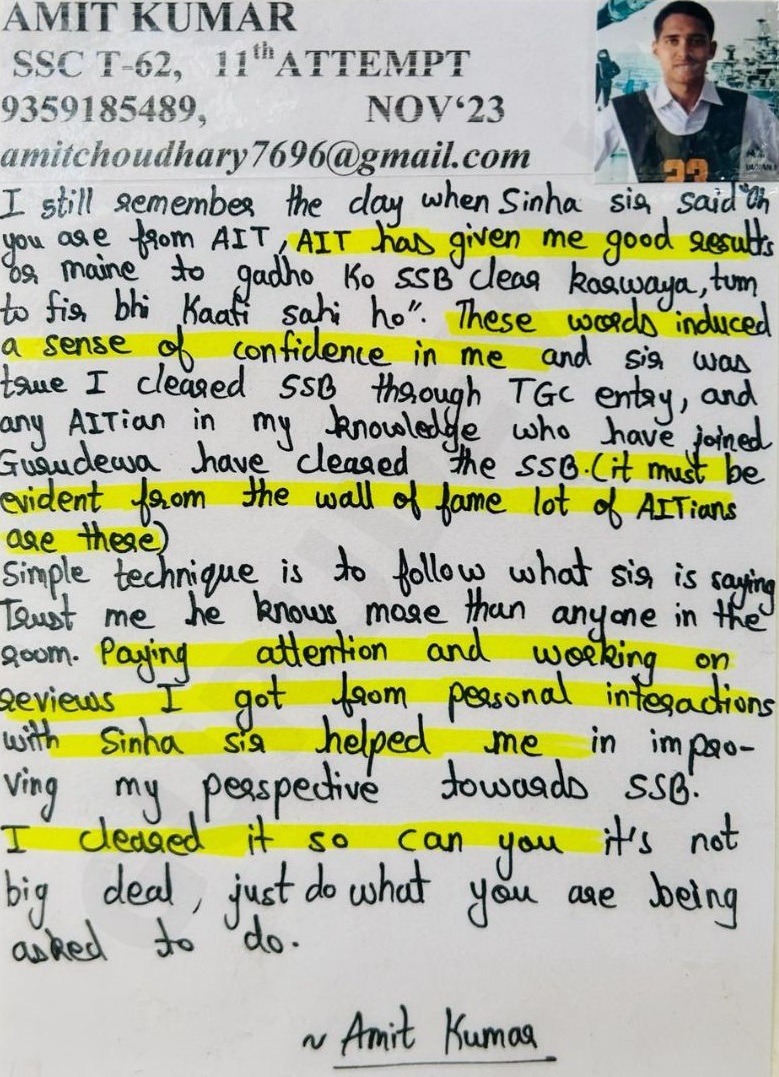 AMIT KUMAR
SSC T-62, 11th ATTEMPT
9359185489, NOV‘23
amitchoudhary7696@gmail.com
33
I still remember the day when Sinha sir said "Oh
you are from AIT, AIT has given me good results
or maine to gadho Ko SSB clear karwaya, tum
to fir bhi Kaafi sahi ho". These words induced
a sense of confidence in me and sir was
true I cleared SSB through TGC entry, and
any AITian in my knowledge who have joined
Gurudewa have cleared the SSB. (it must be
evident from the wall of fame lot of AITians
are there)
Simple technique is to follow what sir is saying
Trust me he knows more than anyone in the
room. Paying attention and working on
reviews I got from personal interactions
with Sinha sir helped me in impro-
ving my perspective towards SSB.
I cleared it so can you it's not
big deal, just do what you are being
asked to do.
~ Amit Kumar